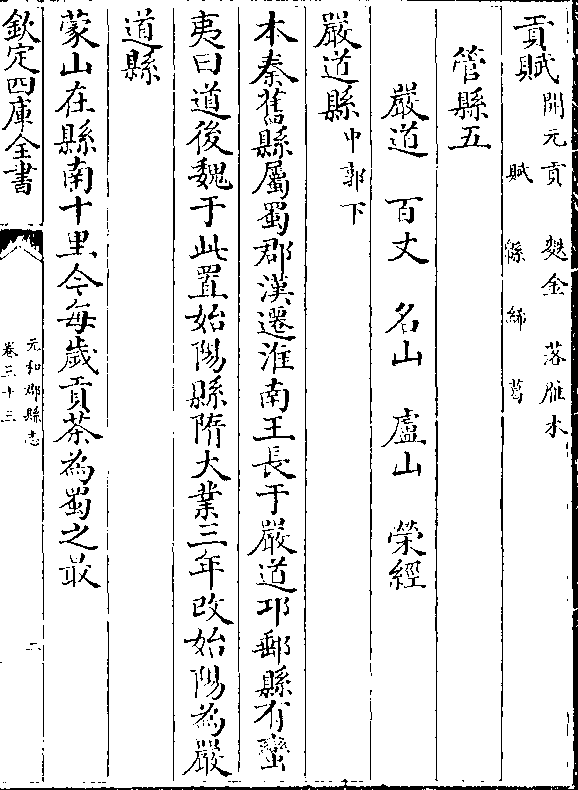 貢賦 開元貢 麩金 落雁木
賦 緜 絺 葛
管縣五
嚴道 百丈 名山 盧山 榮經
嚴道縣 中 郭下
木秦舊縣屬蜀郡漢遷淮南王長于嚴道邛郵縣有蠻
夷曰道後魏于此置始陽縣隋大業三年改始陽為嚴
道縣
蒙山在縣南十里今每歲貢茶為蜀之最
欽定四庫全書
元和郡縣志
卷三十三
二